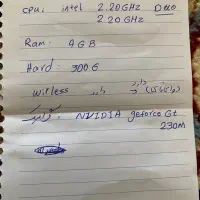 CPU: intel 2.20GHz Duo
2.20 GHz
Ram: 4GB
Hard: 300G
wirless دارد
گرافیک: NVIDIA geforce Gt
230M